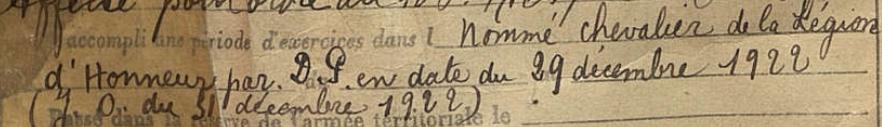 Affecté pour
accompli une période d'exercices dans l Nommé chevalier de la Légion
d'Honneur par. D.P. en date du 29 décembre 1922
(J.O. du 31 décembre 1922)
Passé dans la réserve de l'armée territoriale le